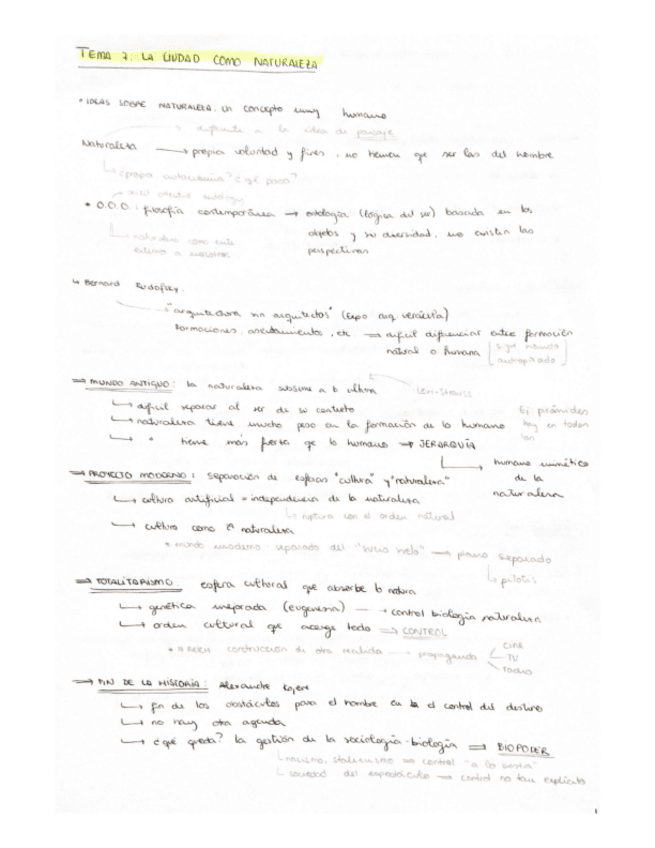 TEMA 7: LA CIUDAD COMO NATURALEZA
• IDEAS SOBRE NATURALEZA. Un concepto muy humano
diferente a la idea de paisaje
Naturaleza → propia voluntad y fines, no tienen que ser las del hombre
¿propia autonomía? ¿qué pasa?
object oriented ontology
• O.O.O: filosofía contemporánea → ontología (lógica del ser) basada en los
objetos y su diversidad, no existen las
perspectivas
naturaleza como ente
externo a nosotros
↳ Bernard Rudofsky.
"arquitectura sin arquitectos" (Expo arq. vernácula)
formaciones, asentamientos, etc. → difícil diferenciar entre formación
natural o humana
⇒ MUNDO ANTIGUO: la naturaleza subsume a la cultura
LEVI-STRAUSS
↳ difícil separar al ser de su contexto
↳ naturaleza tiene mucho peso en la formación de lo humano
↳ " tiene más fuerza qe lo humano → JERARQUÍA
Ej: pirámides
hay en todos
los
↳ humano mimético
de la
naturaleza
⇒ PROYECTO MODERNO: separación de esferas "cultura" y "naturaleza"
↳ cultura artificial = independencia de la naturaleza
↳ ruptura con el orden natural
↳ cultura como 2ª naturaleza
* mundo moderno: separado del "sucio suelo" → plano separado
↳ pilotis
⇒ TOTALITARISMO: esfera cultural que absorbe la natura
↳ genética mejorada (eugenesia) → control biología naturaleza
↳ orden cultural que acoge todo ⇒ CONTROL
construcción de otra realidad → propaganda
CINE
TV
radio
⇒ FIN DE LA HISTORIA: Alexandre Kojève
↳ fin de los obstáculos para el hombre en el control del destino
↳ no hay otra agenda
↳ ¿qué queda? la gestión de la sociología-biología ⇒ BIOPODER
↳ nazismo, stalinismo ⇒ control "a lo bestia"
↳ sociedad del espectáculo → control no tan explícito
1